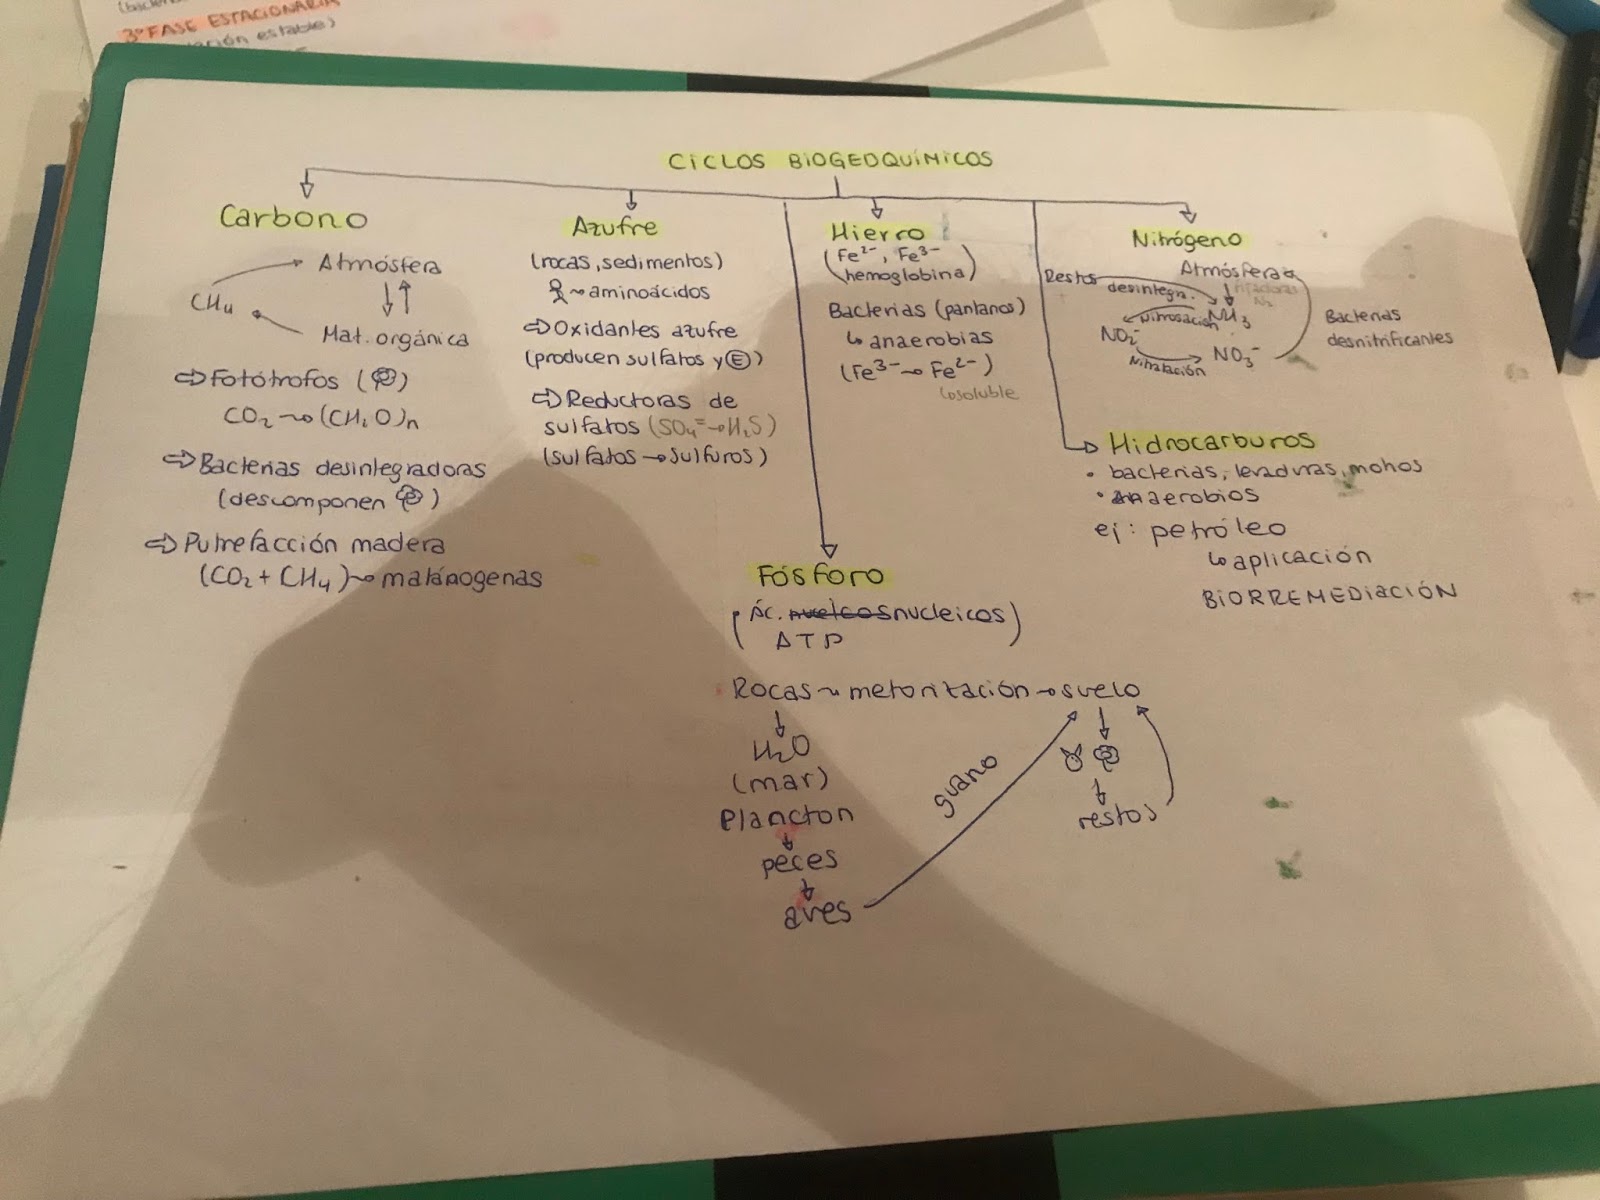 3º FASE ESTACIONARIA
estable)
CICLOS BIOGEOQUÍMICOS
Carbono
Atmósfera
CH4
Mat. orgánica
⇨ Fotótrofos ( )
CO2 → (CH2O)n
⇨ Bacterias desintegradoras
(descomponen )
⇨ Putrefacción madera
(CO2 + CH4) → matánogenas
Azufre
(rocas, sedimentos)
→ aminoácidos
⇨ Oxidantes azufre
(producen sulfatos y Ⓔ)
⇨ Reductoras de
sulfatos (SO4= → H2S)
(sulfatos → sulfuros)
Hierro
(Fe2-, Fe3-
hemoglobina)
Bacterias (pantanos)
↳ anaerobias
(Fe3- → Fe2-)
↳ soluble
Nitrógeno
Atmósfera
Restos
desintegra.
fijadoras
N2
NH3
Nitrosación
NO2-
Nitratación
NO3-
Bacterias
desnitrificantes
Hidrocarburos
• bacterias, levaduras, mohos
• aerobios
ej: petróleo
↳ aplicación
BIORREMEDIACIÓN
Fósforo
(Ác. nucleicos)
ATP
Rocas → metorización → suelo
H2O
(mar)
Plancton
peces
aves
guano
restos